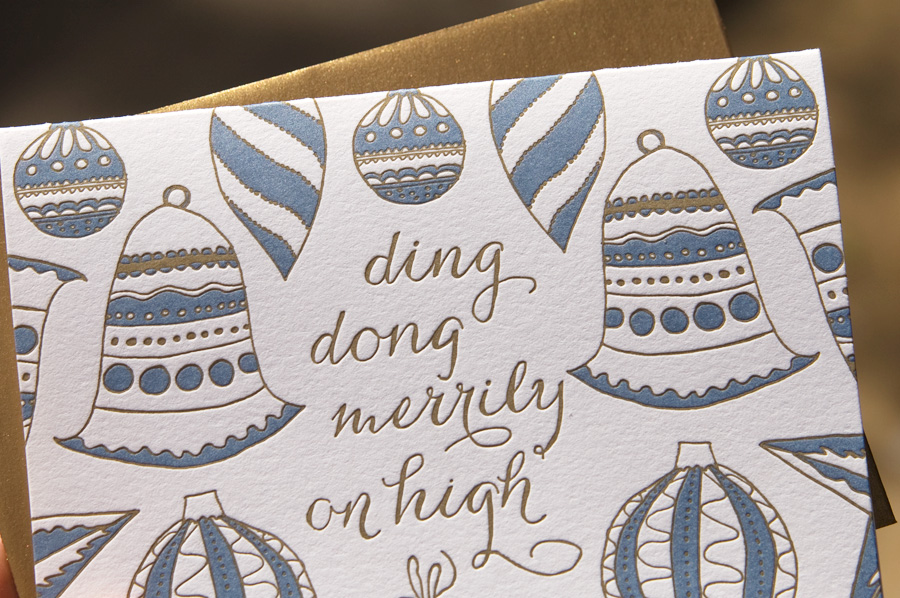 ding
dong
merrily
on high